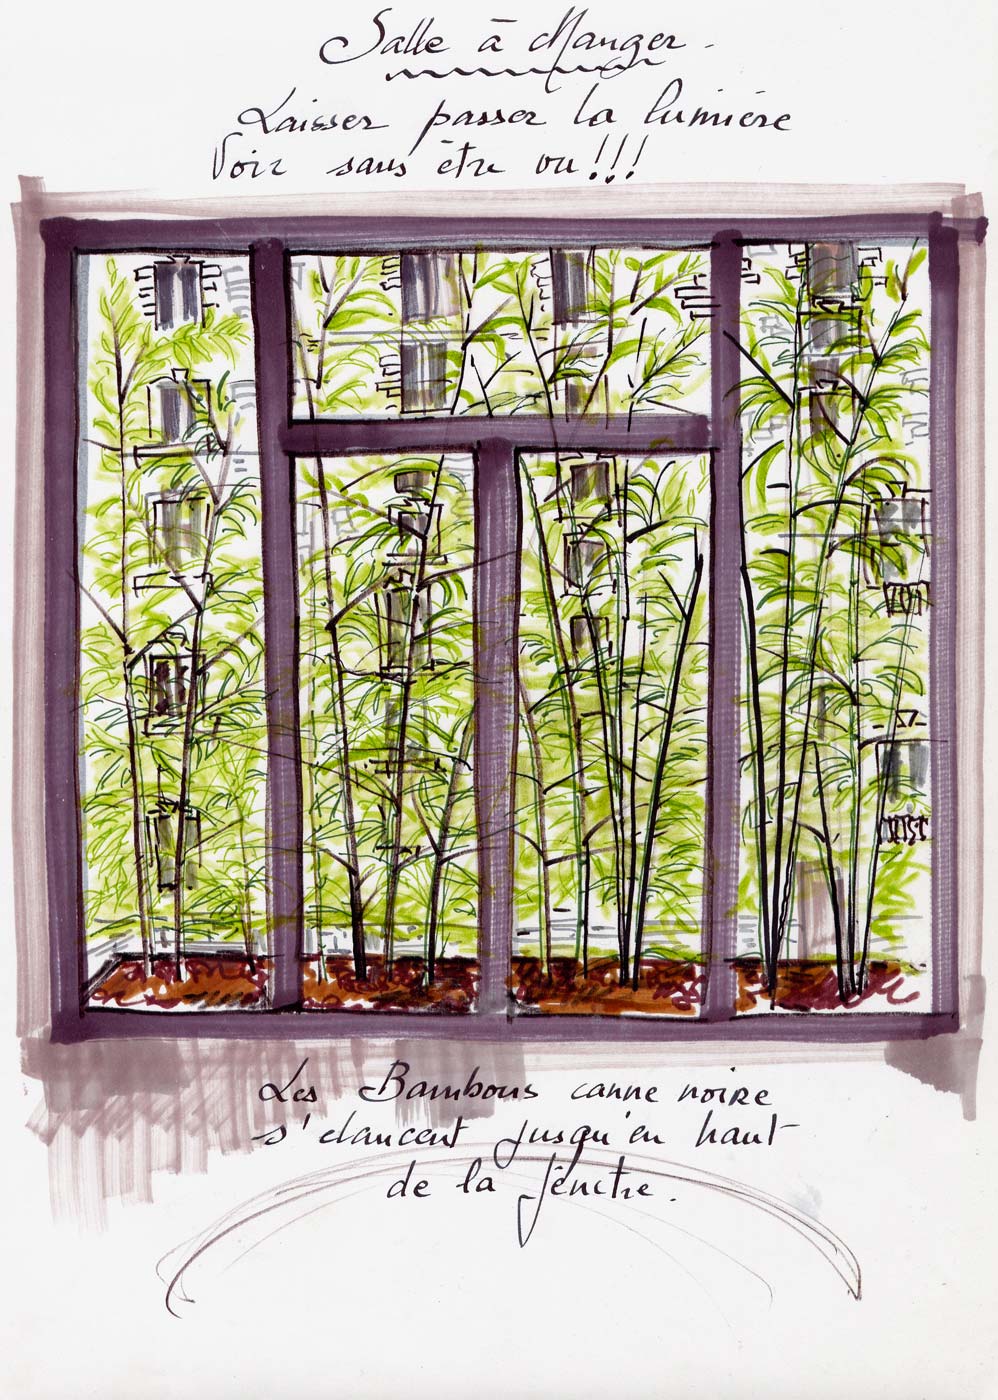 Salle à Manger.
Laisser passer la lumière
Voir sans être vu!!!
Les Bambous canne noire
s'élancent jusqu'en haut
de la fenêtre.